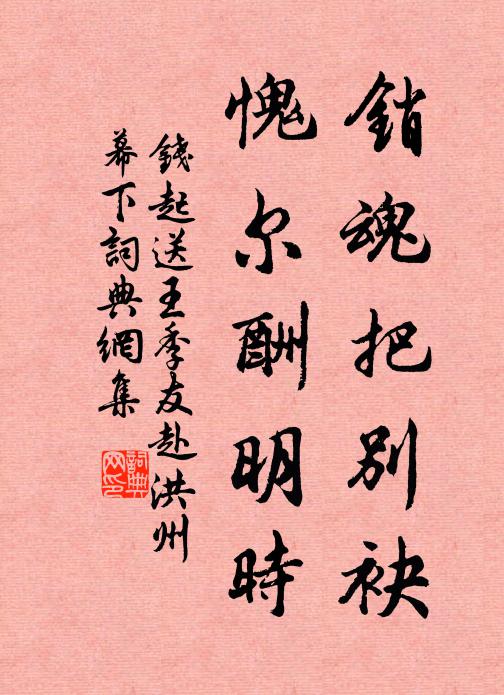 銷魂把別袂
愧尔酬明時
錢起送王季友赴洪州
幕下詞典網集
詞典
网印